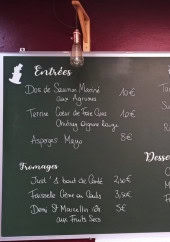 Entrées
Dos de Saumon Mariné
aux Agrumes 10€
Terrine Cœur de Foie Gras
Chutney Oignon Rouge 10€
Asperges Mayo 8€
Fromages
Just' 1 bout de Comté 2,50€
Faisselle Crème ou Coulis 3,50€
Demi St Marcellin rôti
aux Fruits Secs 5€
Desse